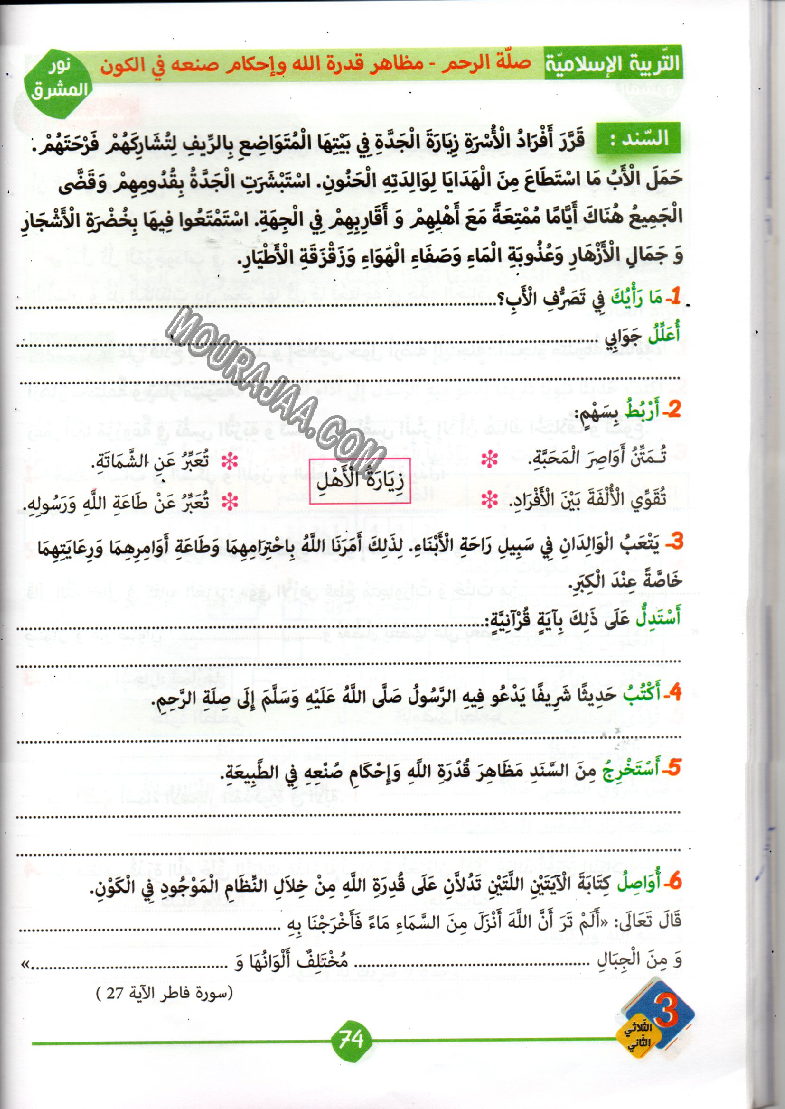 التّربية الإسلاميّة صلّة الرحم - مظاهر قدرة الله وإحكام صنعه في الكون
نور المشرق
السّند : قَرَّرَ أَفْرَادُ الْأُسْرَةِ زِيَارَةَ الْجَدَّةِ فِي بَيْتِهَا الْمُتَوَاضِعِ بِالرِّيفِ لِتُشَارِكَهُمْ فَرْحَتَهُمْ.
حَمَلَ الْأَبُ مَا اسْتَطَاعَ مِنَ الْهَدَايَا لِوَالِدَتِهِ الْحَنُونِ. اسْتَبْشَرَتِ الْجَدَّةُ بِقُدُومِهِمْ وَقَضَّى
الْجَمِيعُ هُنَاكَ أَيَّامًا مُمْتِعَةً مَعَ أَهْلِهِمْ وَ أَقَارِبِهِمْ فِي الْجِهَةِ. اسْتَمْتَعُوا فِيهَا بِخُضْرَةِ الْأَشْجَارِ
وَ جَمَالِ الْأَزْهَارِ وَعُذُوبَةِ الْمَاءِ وَصَفَاءِ الْهَوَاءِ وَزَقْزَقَةِ الْأَطْيَارِ.
1- مَا رَأْيُكَ فِي تَصَرُّفِ الْأَبِ؟
أُعَلِّلُ جَوَابِي
MOURAJAA.COM
2- أَرْبُطُ بِسَهْمٍ:
تُمَتِّنُ أَوَاصِرَ الْمَحَبَّةِ. * * تُعَبِّرُ عَنِ الشَّمَاتَةِ.
زِيَارَةُ الْأَهْلِ
تُقَوِّي الْأُلْفَةَ بَيْنَ الْأَفْرَادِ. * * تُعَبِّرُ عَنْ طَاعَةِ اللَّهِ وَرَسُولِهِ.
3- يَتْعَبُ الْوَالِدَانِ فِي سَبِيلِ رَاحَةِ الْأَبْنَاءِ. لِذَلِكَ أَمَرَنَا اللَّهُ بِاحْتِرَامِهِمَا وَطَاعَةِ أَوَامِرِهِمَا وَرِعَايَتِهِمَا
خَاصَّةً عِنْدَ الْكِبَرِ.
أَسْتَدِلُّ عَلَى ذَلِكَ بِآيَةٍ قُرْآنِيَّةٍ:
4- أَكْتُبُ حَدِيثًا شَرِيفًا يَدْعُو فِيهِ الرَّسُولُ صَلَّى اللَّهُ عَلَيْهِ وَسَلَّمَ إِلَى صِلَةِ الرَّحِمِ.
5- أَسْتَخْرِجُ مِنَ السَّنَدِ مَظَاهِرَ قُدْرَةِ اللَّهِ وَإِحْكَامِ صُنْعِهِ فِي الطَّبِيعَةِ.
6- أُوَاصِلُ كِتَابَةَ الْآيَتَيْنِ اللَّتَيْنِ تَدُلاَّنِ عَلَى قُدِرَةِ اللَّهِ مِنْ خِلاَلِ النِّظَامِ الْمَوْجُودِ فِي الْكَوْنِ.
قَالَ تَعَالَى: «أَلَمْ تَرَ أَنَّ اللَّهَ أَنْزَلَ مِنَ السَّمَاءِ مَاءً فَأَخْرَجْنَا بِهِ
وَ مِنَ الْجِبَالِ ........ مُخْتَلِفٌ أَلْوَانُهَا وَ ........»
(سورة فاطر الآية 27 )
3
الثلاثي الثاني
74